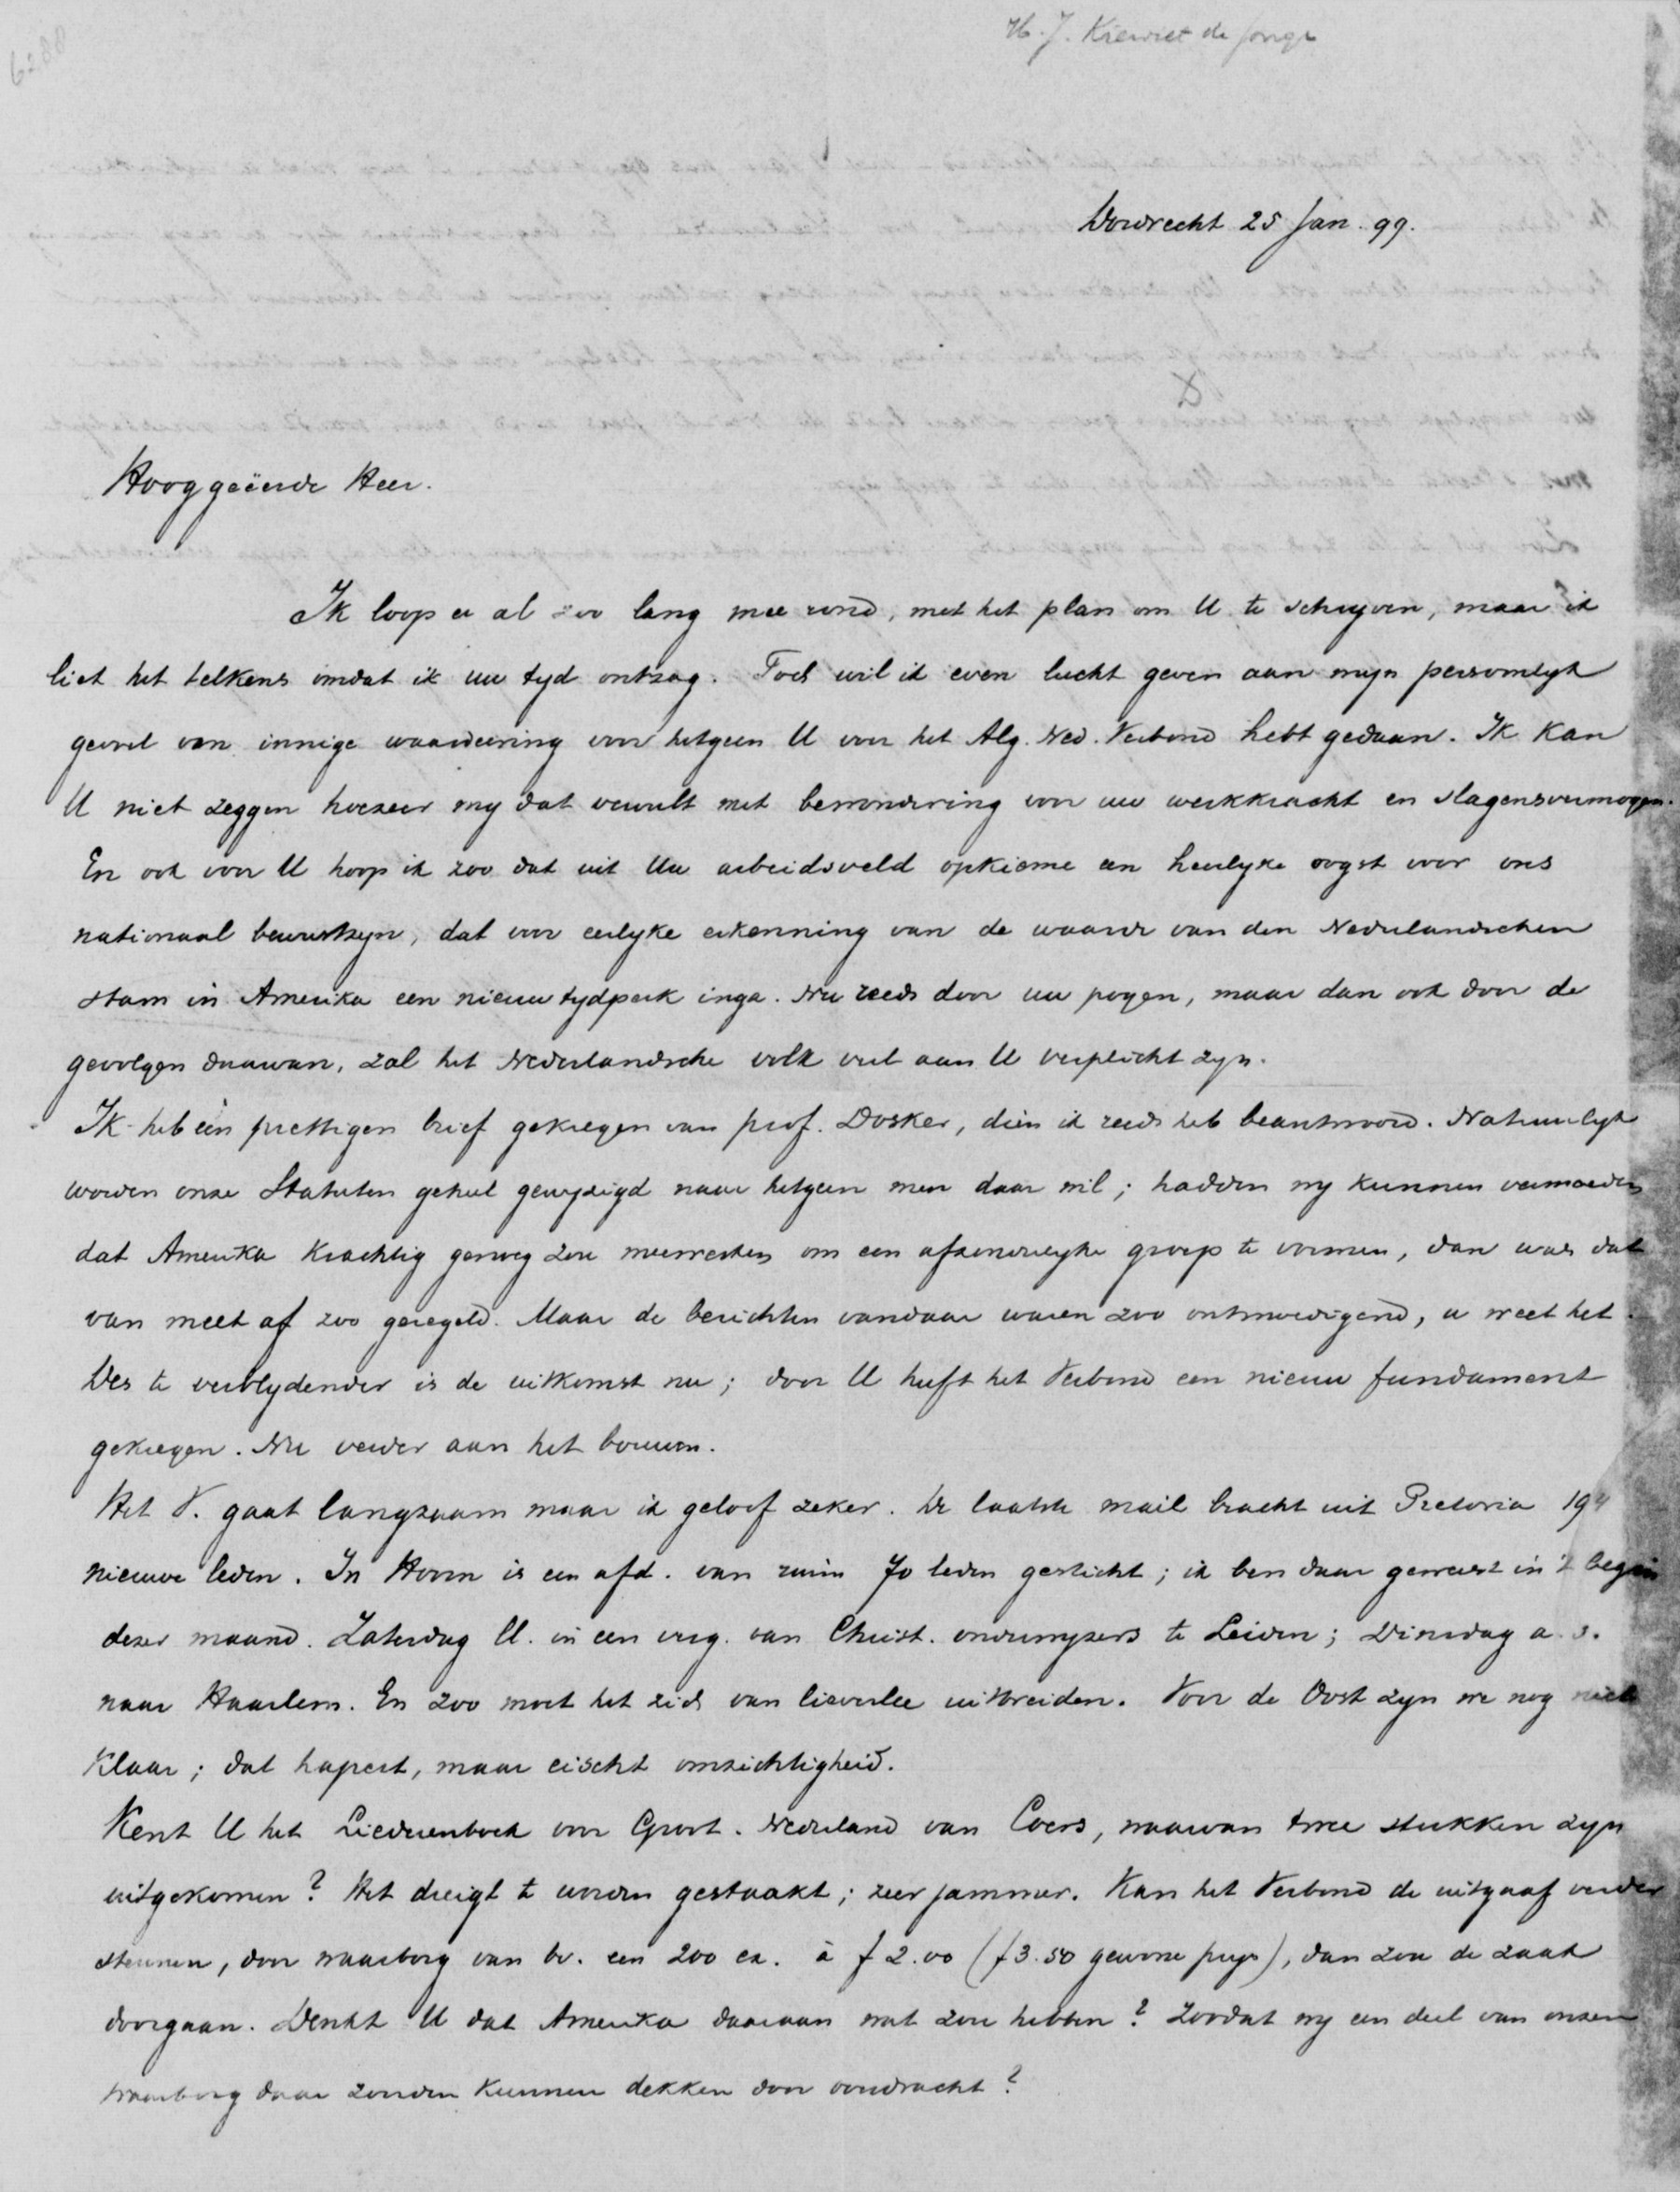 H. J. Kiewiet de Jonge
Dordrecht 25 Jan. 99.
Hooggeëerde Heer.
Ik loop er al zoo lang mee rond, met het plan om U te schryven, maar ik
liet het telkens omdat ik uw tyd ontzag. Toch wil ik even lucht geven aan myn persoonlyk
gevoel van innige waardeering voor hetgeen U voor het Alg. Ned. Verbond hebt gedaan. Ik kan
U niet zeggen hoezeer my dat vervult met bewondering voor uw werkkracht en slagensvermogen.
En ook voor U hoop ik zoo dat uit Uw arbeidsveld opkieme een heerlyke oogst voor ons
nationaal bewustzyn, dat voor eerlyke erkenning van de waarde van den Nederlandschen
stam in Amerika een nieuw tydperk inga. Nu reeds door uw pogen, maar dan ook door de
gevolgen daarvan, zal het Nederlandsche volk veel aan U verplicht zyn.
Ik heb een prettigen brief gekregen van prof. Dosker, dien ik reeds heb beantwoord. Natuurlyk
worden onze Statuten geheel gewyzigd naar hetgeen men daar wil; hadden wy kunnen vermoeden
dat Amerika krachtig genoeg zou meewerken om een afzonderlyke groep te vormen, dan was dat
van meet af zoo geregeld. Maar de berichten vandaar waren zoo ontmoedigend, u weet het.
Des te verblydender is de uitkomst nu; door U heeft het Verbond een nieuw fundament
gekregen. Nu verder aan het bouwen.
Het V. gaat langzaam maar ik geloof zeker. De laatste mail bracht uit Pretoria
nieuwe leden. In Hoorn is een afd. van ruim 70 leden gesticht; ik ben daar geweest in 't begin
dezer maand. Zaterdag ll. in een verg. van Christ. onderwyzers te Leiden; Dinsdag a.s.
naar Haarlem. En zoo moet het zich van lieverlee uitbreiden. Voor de Oost zyn we nog niet
klaar; dat hapert, maar eischt omzichtigheid.
Kent U het Liederenboek voor Groot-Nederland van Coers, waarvan twee stukken zyn
uitgekomen? Het dreigt te worden gestaakt; zeer jammer. Kan het Verbond de uitgaaf verder
steunen, door waarborg van bv. een 200 ex. à f 2.00 (f 3.50 gewone prys), dan zou de zaak
doorgaan. Denkt U dat Amerika daaraan wat zou hebben? Zoodat wy een deel van onzen
waarborg daar zouden kunnen dekken door overdracht?